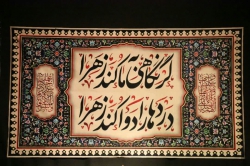 گر نگاهی به ما کند زهرا
دردها را دوا کند زهرا